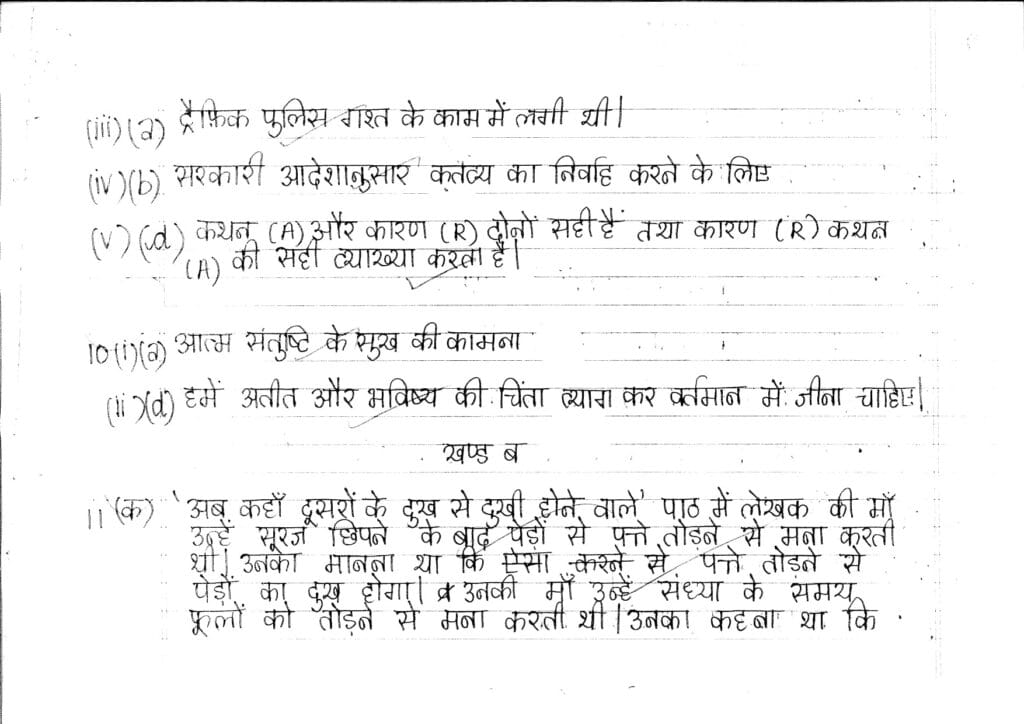 (iii) (a) ट्रैफ़िक पुलिस गश्त के काम में लगी थी।
(iv) (b) सरकारी आदेशानुसार कर्तव्य का निर्वाह करने के लिए
(v) (d) कथन (A) और कारण (R) दोनों सही हैं तथा कारण (R) कथन
(A) की सही व्याख्या करता है।
10 (i) (a) आत्म संतुष्टि के सुख की कामना
(ii) (d) हमें अतीत और भविष्य की चिंता त्याग कर वर्तमान में जीना चाहिए।
खण्ड ब
11 (क) 'अब कहाँ दूसरों के दुख से दुखी होने वाले' पाठ में लेखक की माँ
उन्हें सूरज छिपने के बाद पेड़ों से पत्ते तोड़ने से मना करती
थी। उनका मानना था कि ऐसा करने से पत्ते तोड़ने से
पेड़ों का दुख होगा। उनकी माँ उन्हें संध्या के समय
फूलों को तोड़ने से मना करती थी। उनका कहना था कि